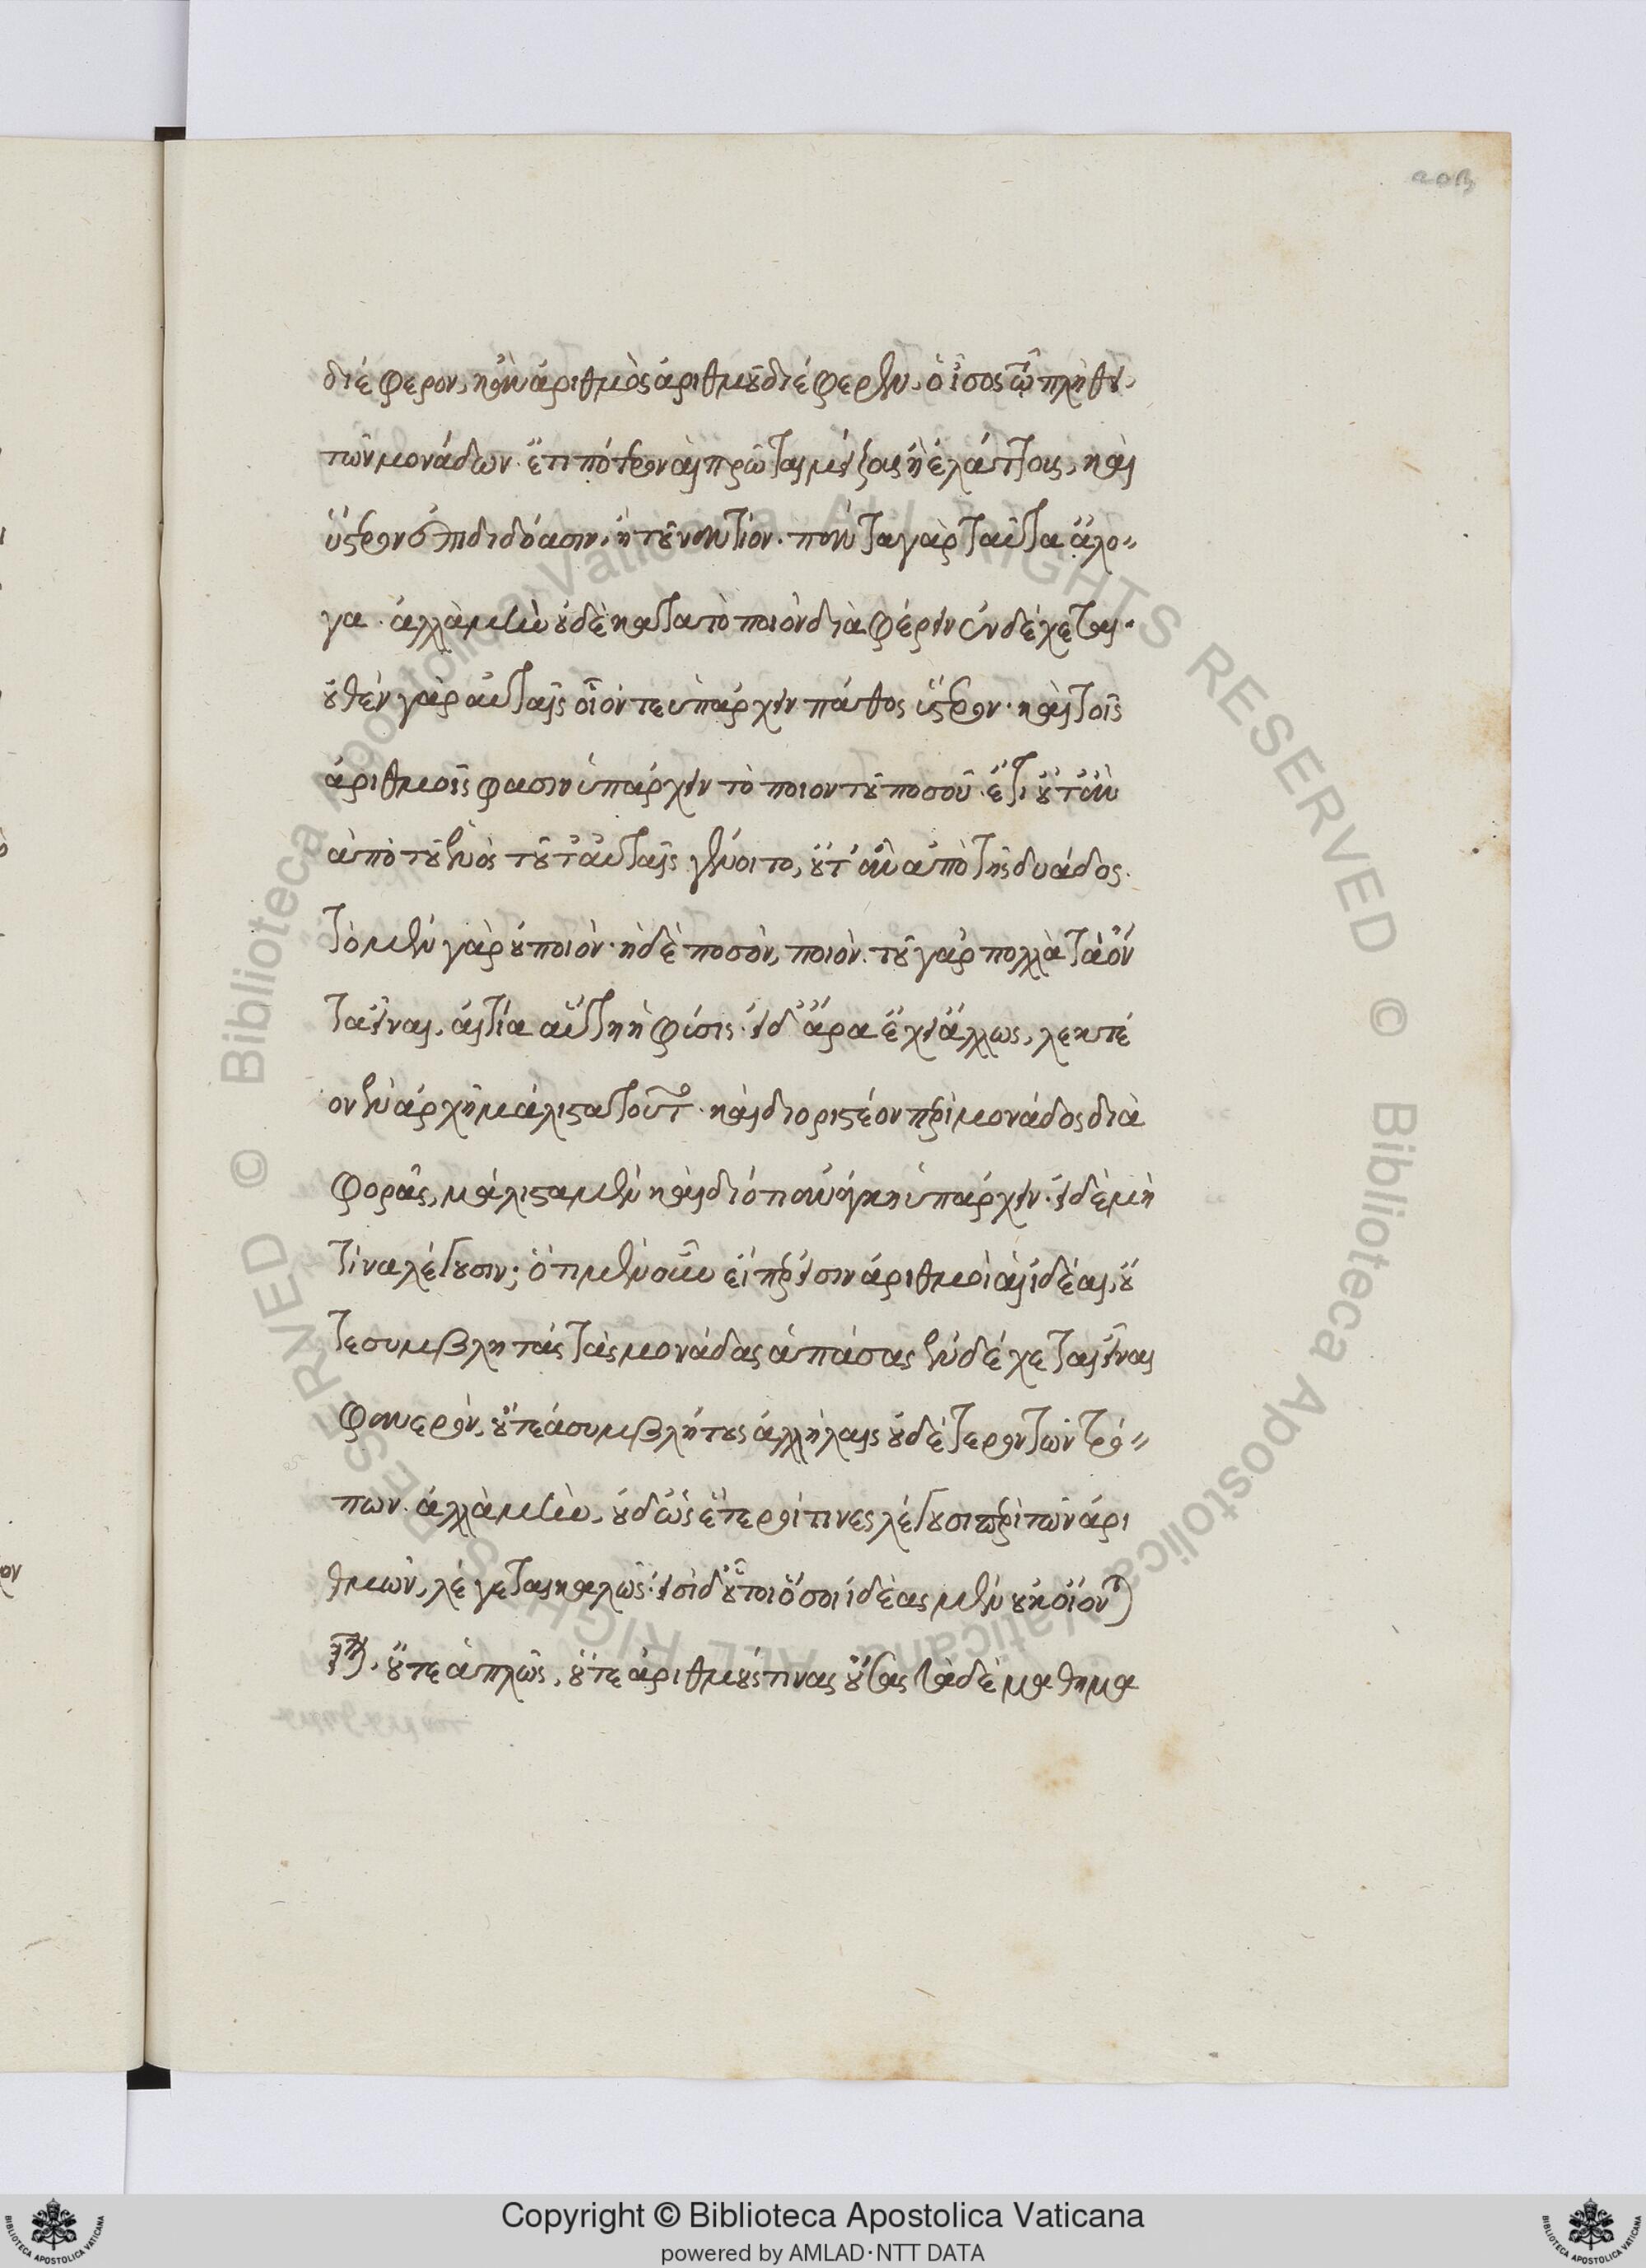 διέφερον, κἂν ἀριθμὸς ἀριθμοῦ διέφερεν. ὁ ἴσος τῷ πλήθει,
τῶν μονάδων. ἔτι πότερον αἱ πρῶται μείζους ἢ ἐλάττους, καὶ
ὕστερον ἐπιδιδόασιν, ἢ τοὐναντίον. πάντα γὰρ ταῦτα ἄλο〃
γα. ἀλλὰ μὴν οὐδὲ κατὰ τὸ ποιὸν διὰφέρειν ἐνδέχεται.
οὐθὲν γὰρ αὐταῖς οἷόν τε ὑπάρχειν πάθος ὕστερον. καὶ τοῖς
ἀριθμοῖς φασιν ὑπάρχειν τὸ ποιον τοῦ ποσοῦ. ἔτι οὔτ' ἂν
ἀπὸ τοῦ ἑνὸς τοῦτ' αὐταῖς γένοιτο, οὔτ' ἂν ἀπὸ τῆς δυάδος.
τὸ μὲν γὰρ οὐ ποιὸν. ἡ δὲ ποσὸν, ποιὸν. τοῦ γὰρ πολλὰ τὰ ὄν
τα εἶναι, αἰτία αὕτη ἡ φύσις. εἰ δ' ἄρα ἔχει ἄλλως, λεκτέ
ον ἐν ἀρχῇ μάλιστα τοῦτο. καὶ διοριστέον περὶ μονάδος δια
φορᾶς, μάλιστα μὲν καὶ διότι ἀνάγκη ὑπάρχειν. εἰ δὲ μὴ
τίνα λέγουσιν; ὅτι μὲν οὖν εἴπερ εἰσὶν ἀριθμοὶ αἱ ἰδέαι, οὔ
τε συμβλητάς τὰς μονάδας ἁπάσας ἐνδέχεται εἶναι
φανερὸν, οὔτε ἀσυμβλήτους ἀλλήλαις οὐδέτερον τῶν τρό〃
πων. ἀλλὰ μὴν, οὐδ' ὡς ἕτεροί τινες λέγουσι περὶ τῶν ἀρι
θμῶν, λέγεται καλῶς. εἰσὶ δ' οὗτοι ὅσοι ἰδέας μὲν οὐκ οἴονται
εἶναι. οὔτε ἁπλῶς, οὔτε ἀριθμούς τινας οὔσας τὰ δὲ μαθημα
Copyright © Biblioteca Apostolica Vaticana
powered by AMLAD·NTT DATA